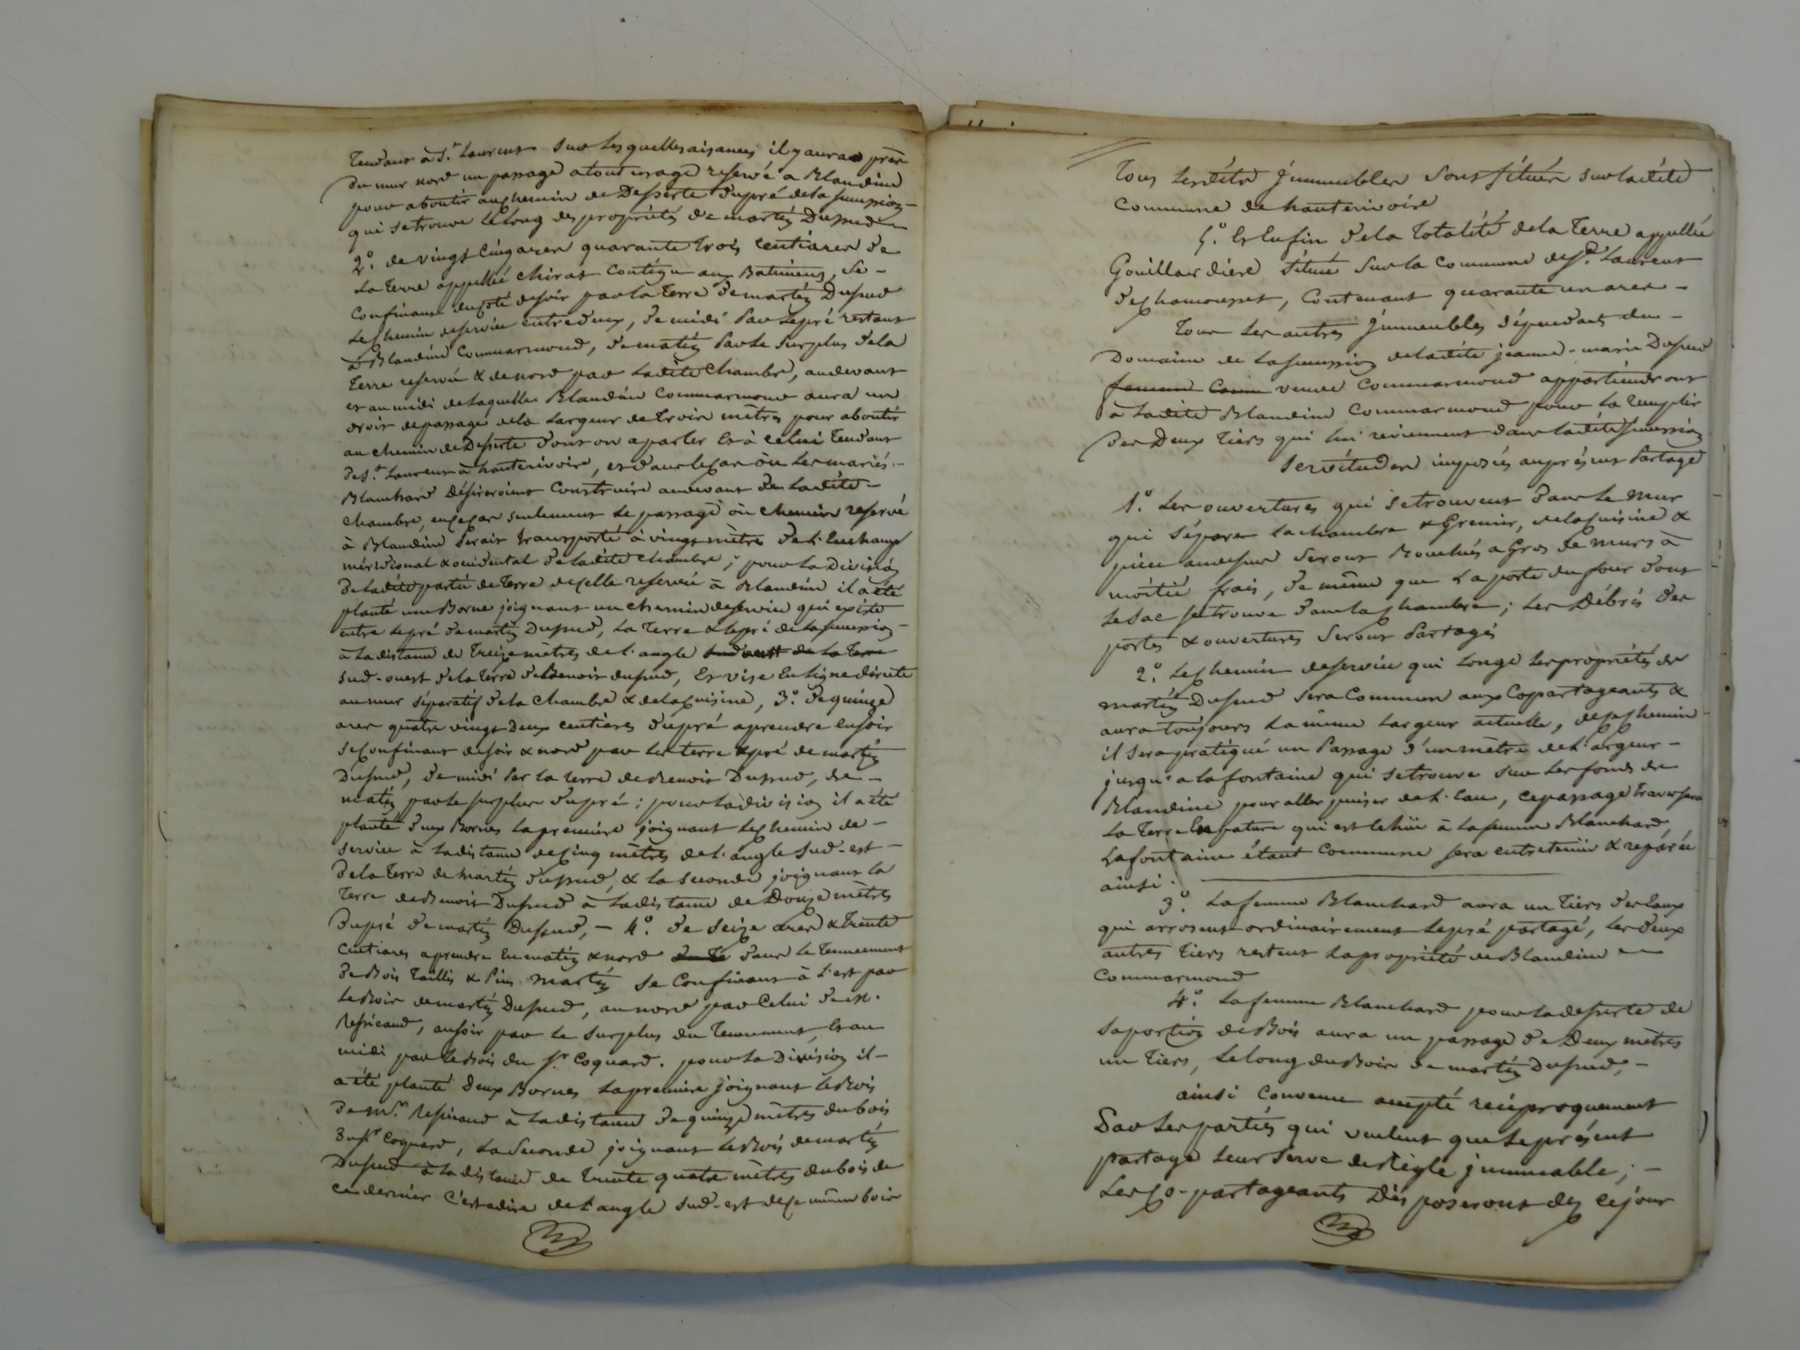 tendant à St Laurent sur lesquelles aisances il y aura près
du mur nord un passage a tout usage reservé a Blandine
pour aboutir au chemin de Desserte du pré de la succession
qui se trouve le long des propriétés de martin Dupud
2o. de vingt cinq ares quarante trois centiares de
la terre appellée chirat contigue aux Batiments, se
confinant du coté de soir par la terre de martin Dupud
le chemin de service entredeux, de midi par le pré restant
à Blandine Commarmond, de matin par le surplus de la
terre reservée & de nord par ladite chambre, au devant
et au midi de laquelle Blandine Commarmond aura un
droit de passage de la largeur de trois mètres pour aboutir
au chemin de Desserte dont on a parler et à celui tendant
de St Laurent à hauterivoire, et dans le cas où les mariés
Blanchard désireroient construire au devant de ladite
chambre, en ce cas seulement le passage ou chemin reservé
à Blandine serait transporté à vingt mètres de l'
méridional & occidental de ladite chambre ; pour la Division
de ladite partie de terre de celle reservée à Blandine il a été
planté une Borne joignant un chemin de service qui existe
entre le pré de martin Dupud, la terre & le pré de la succession
à la distance de treize mètres de l'angle sud ouest de la terre
sud-ouest de la terre de Benoit dupud, et vise en ligne directe
au mur séparatif de la chambre & de la cuisine, 3o. de quinze
ares quatre vingt deux centiares du pré a prendre en soir
se confinant de soir & nord par les terre & pré de martin
Dupud, de midi par la terre de Benoit Dupud, de
matin par le surplus du pré ; pour la division il a été
planté deux Bornes la premiere joignant le chemin de
service à la distance de cinq mètres de l'angle sud-est
de la terre de martin dupud, & la seconde joignant la
terre de Benoit Dupud à la distance de Douze mètres
du pré de martin Dupud, - 4o. de seize ares & trente
centiares a prendre en matin & nord dans le tennement
de Bois taillis & Pins martin se confinant à l'est par
le Bois de martin Dupud, au nord par celui de M.
Ressicaud, au soir par le surplus du tenement, et au
midi par le Bois du sr. Coquard. pour la Division il
a été planté deux Bornes la premiere joignant le Bois
de Mr. à la distance de quinze mètres du bois
du sr Coquard, la Seconde joignant le Bois de martin
Dupud à la distance de trente quatre mètres du bois de
ce dernier c'est a dire de l'angle sud-est de ce même bois
tous lesdits jmmeubles sont situés sur ladite
commune de hauterivoire
5o. Et Enfin de la totalité de la terre appellée
Gouillardiere située sur la commune de St. Laurent
de chamousset, contenant quarante un ares
tous les autres jmmeubles dépendant du
Domaine de la succession de ladite jeanne-marie Dupud
femme veuve Commarmond appartiendront
à ladite Blandine Commarmond pour la remplir
des Deux tiers qui lui reviennent dans ladite succession
servitudes imposées au présent Partage
1o. Les ouvertures qui se trouvent dans le mur
qui sépare la chambre & Grenier, de la cuisine &
pièce au dessus seront Bouchés a Gros de murs à
moitié frais, de même que la porte du four dont
le sac se trouve dans la chambre ; les Débris des
portes & ouvertures seront Partagés
2o. Le chemin de service qui longe les propriétés de
martin Dupud sera commun aux copartageants &
aura toujours la même largeur actuelle, de ce chemin
il sera pratiqué un Passage d'un mètre de largeur
jusqu'a la fontaine qui se trouve sur les fonds de
Blandine pour aller puiser de l'eau, ce passage traversera
la terre En pature qui est échue à la femme Blanchard,
La fontaine étant commune sera entretenue & réparée
ainsi.
3o. La femme Blanchard aura un tiers des Eaux
qui arrosent ordinairement le pré partagé, les deux
autres tiers restent la propriété de Blandine
Commarmond
4o. La femme Blanchard pour la desserte de
sa portion de Bois aura un passage de Deux mètres
un tiers, le long du Bois de martin Dupud,
ainsi convenu accepté réciproquement
Par les parties qui veulent que le présent
partage leur serve de Règle jmmuable ;
Les Co-partageants Disposeront dès ce jour